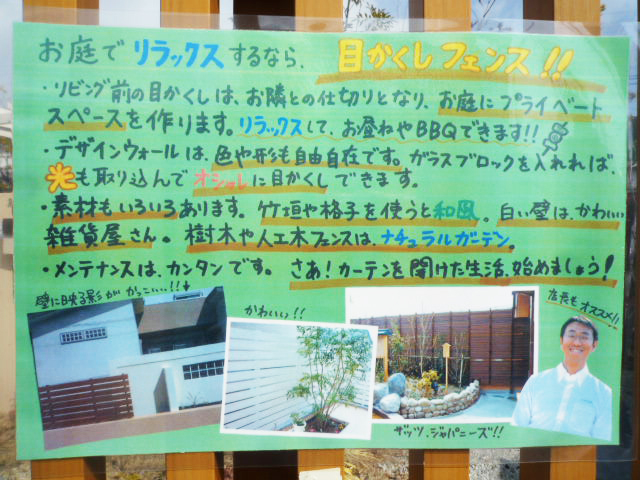 お庭でリラックスするなら、目かくしフェンス!!
・リビング前の目かくしは、お隣との仕切りとなり、お庭にプライベート
スペースを作ります。リラックスして、お昼ねやBBQできます!!
・デザインウォールは、色や形も自由自在です。ガラスブロックを入れれば、
光も取り込んでオシャレに目かくしできます。
・素材もいろいろあります。竹垣や格子を使うと和風。白い壁は、かわいい
雑貨屋さん。樹木や人工木フェンスは、ナチュラルガーデン。
・メンテナンスは、カンタンです。さあ!カーテンを開けた生活、始めましょう!
壁に映る影がかっこいい!!
かわいい!!
店長もオススメ!!
ザッツ、ジャパニーズ!!